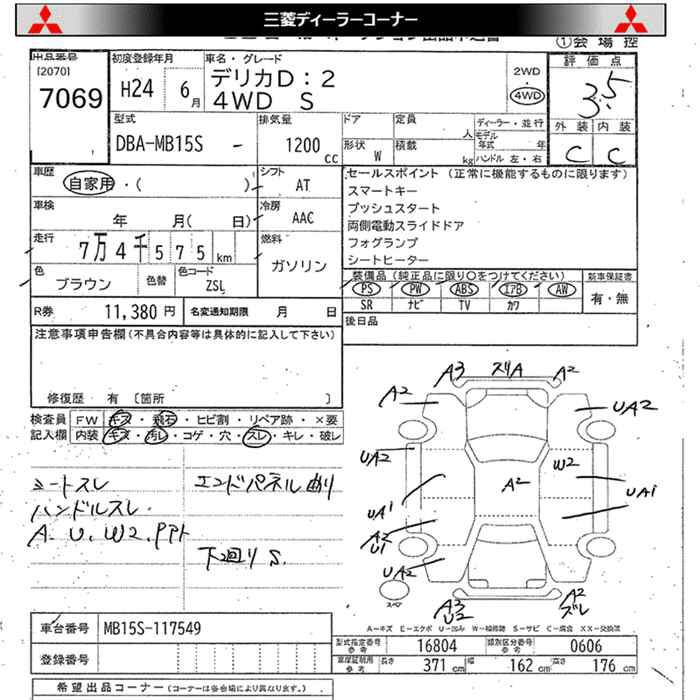 三菱ディーラーコーナー
①会場控
出品番号
[2070]
7069
初度登録年月
H24 6月
車名・グレード
デリカD:2
4WD S
2WD
4WD
評価点
3.5
外装 内装
C C
型式
DBA-MB15S -
排気量
1200 cc
ドア
定員 人
形状 W
積載 kg
ディーラー・並行
モデル年式 年
ハンドル 左・右
車歴
自家用・( )
シフト
AT
車検
年 月( 日)
冷房
AAC
走行
7万4千575km
燃料
ガソリン
色
ブラウン
色替
色コード
ZSL
R券 11,380円
名変通知期限 月 日
セールスポイント (正常に機能するものに限ります)
スマートキー
プッシュスタート
両側電動スライドドア
フォグランプ
シートヒーター
装備品(純正品に限り〇をつけてください)
PS PW ABS エアB AW
SR ナビ TV カワ
新車保証書
有・無
後日品
注意事項申告欄(不具合内容等は具体的に記入して下さい)
修復歴 有 〔箇所 〕
検査員
記入欄
FW キズ・飛石・ヒビ割・リペア跡・×要
内装 キズ・汚レ・コゲ・穴・スレ・キレ・破レ
シートスレ
ハンドルスレ
A.U.W2.PPト
エンドパネル曲り
下廻りS.
A3 スリA A2
A2 UA2
UA2 W2
A2
UA1 UA1
A2
U1
UA2
スペア
A3
U2
A2
ズレ
A-キズ E-エクボ U-凹み W-補修跡 S-サビ C-腐食 XX-交換済
車台番号 MB15S-117549
登録番号
型式指定番号 参考 16804
類別区分番号 参考 0606
車庫証明用 参考 長さ 371cm 幅 162cm 高さ 176cm
希望出品コーナー(コーナーは各会場により異なります。)